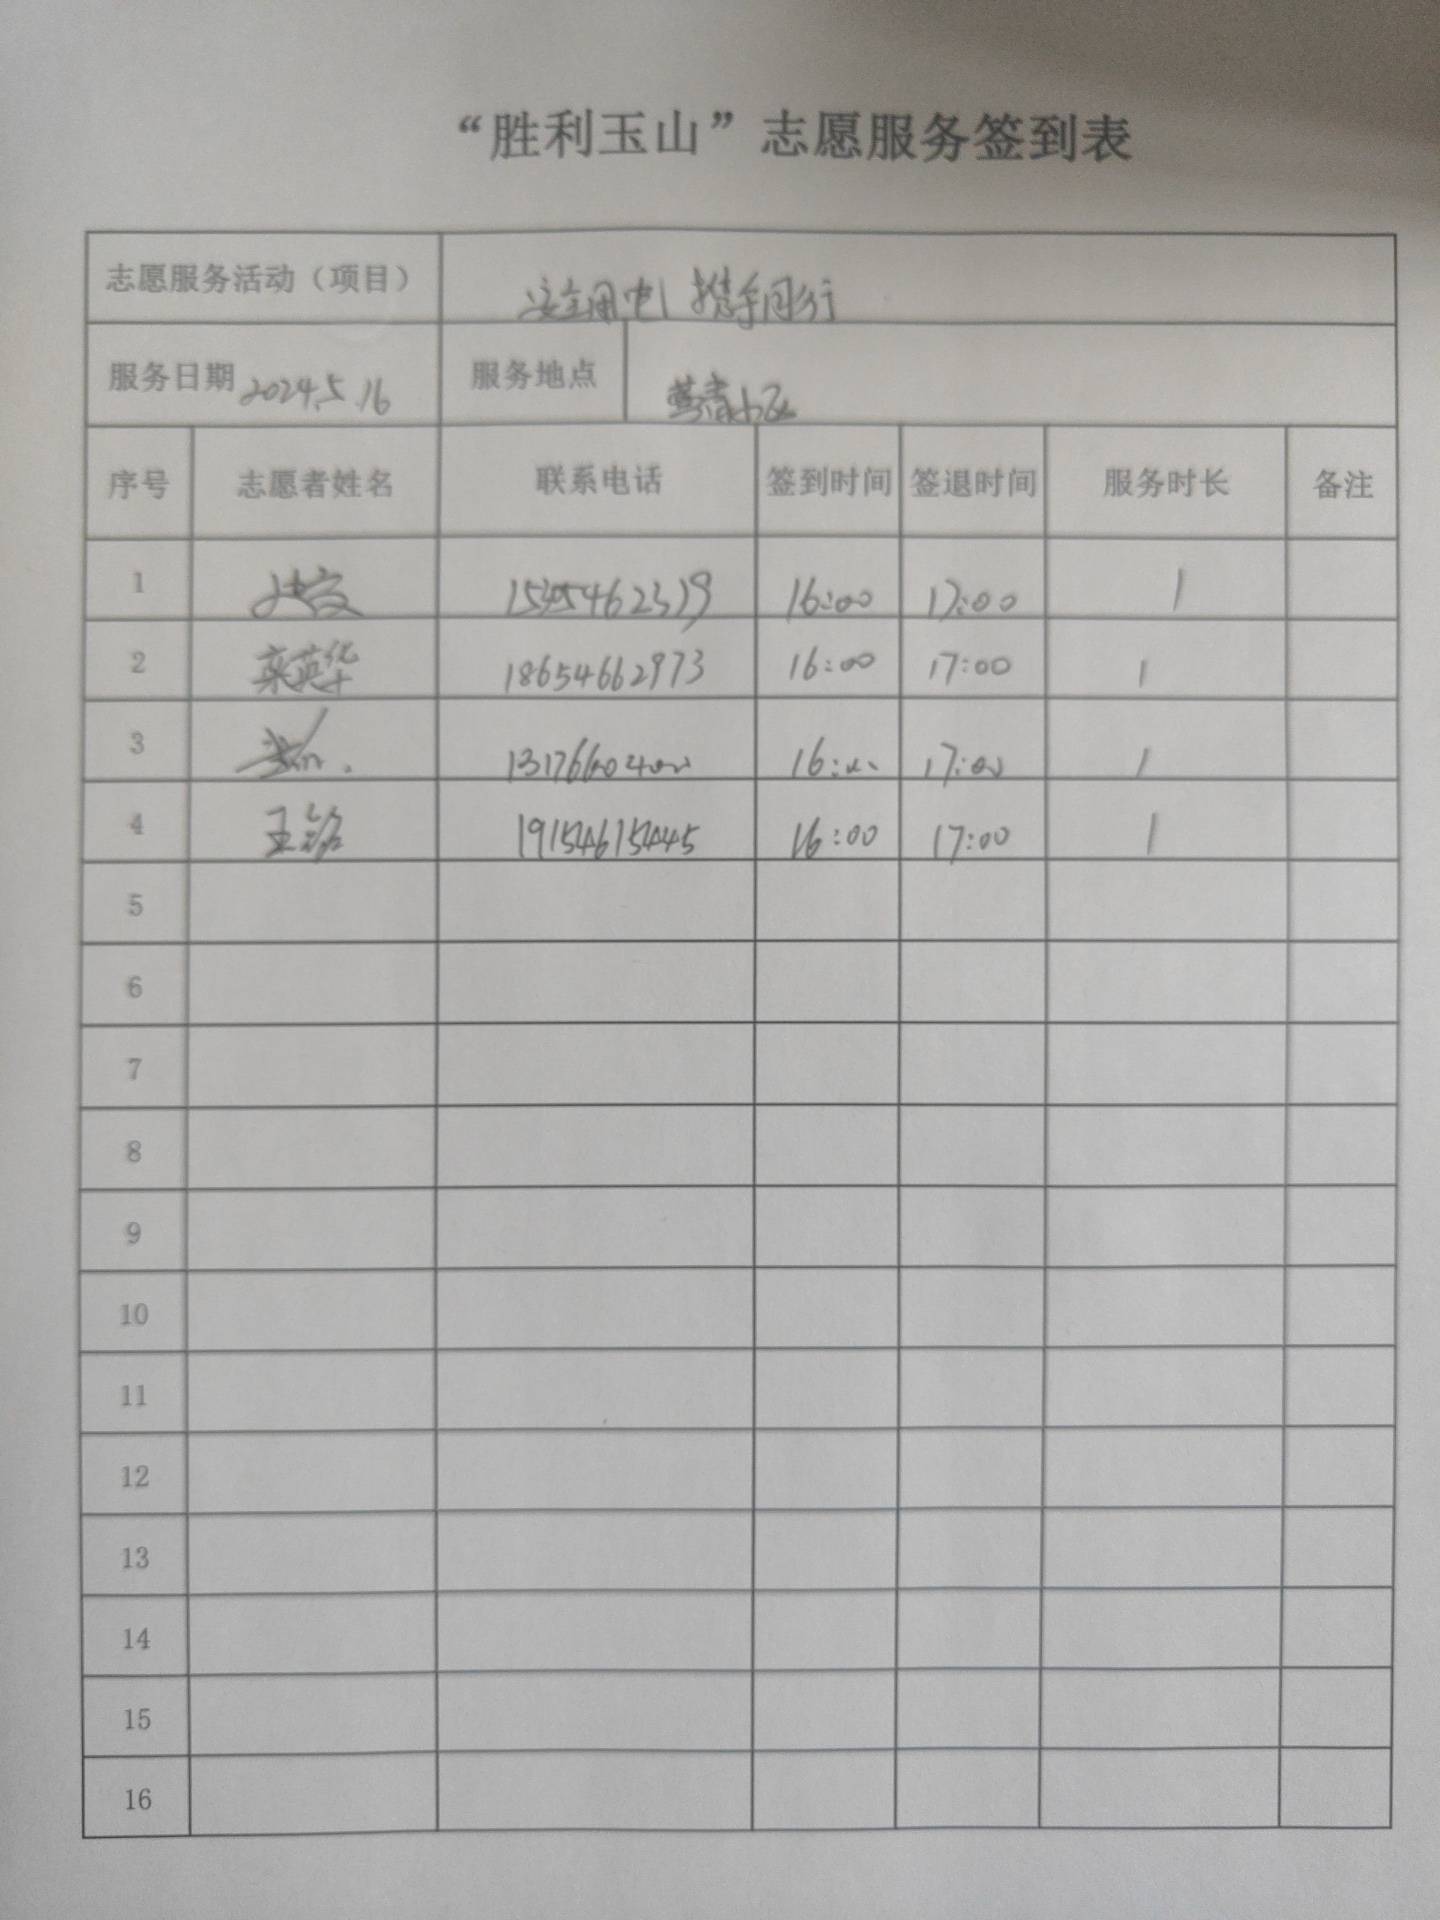 “胜利玉山”志愿服务签到表
志愿服务活动（项目） 安全用电 携手同行
服务日期 2024.5.16 服务地点 小区
序号 志愿者姓名 联系电话 签到时间 签退时间 服务时长 备注
1 16:00 17:00 1
2 英华 18654662973 16:00 17:00 1
3 17:00 1
4 王铭 19154615445 16:00 17:00 1
5
6
7
8
9
10
11
12
13
14
15
16